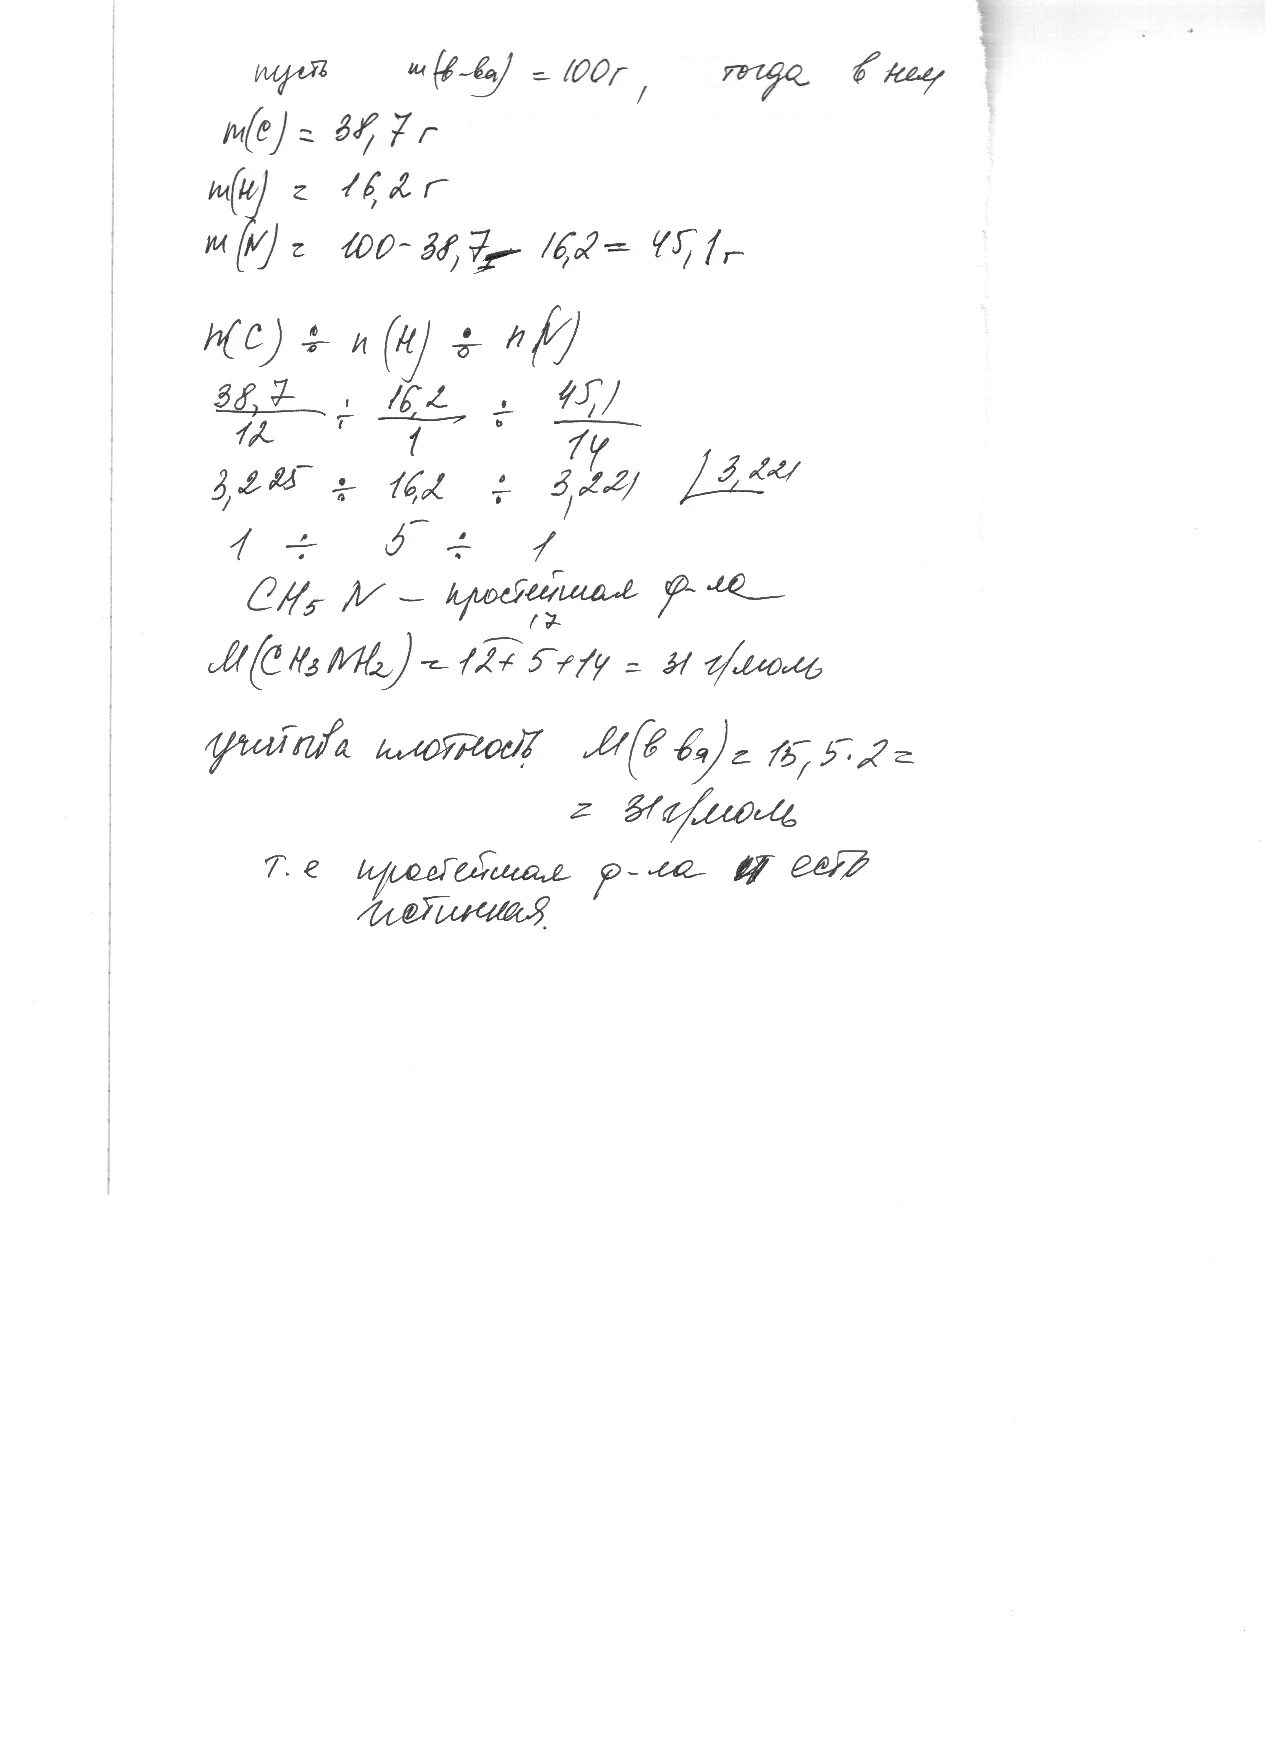 пусть m(в-ва) = 100г, тогда в нем
m(C) = 38,7 г
m(H) = 16,2 г
m(N) = 100 - 38,7 - 16,2 = 45,1 г
n(C) ÷ n(H) ÷ n(N)
38,7/12 ÷ 16,2/1 ÷ 45,1/14
3,225 ÷ 16,2 ÷ 3,221 | 3,221
1 ÷ 5 ÷ 1
CH5N – простейшая ф-ла
17
M(CH3NH2) = 12 + 5 + 14 = 31 г/моль
учитыва плотность M(в ва) = 15,5·2 =
= 31 г/моль
т.е простейшая ф-ла и есть
истинная.